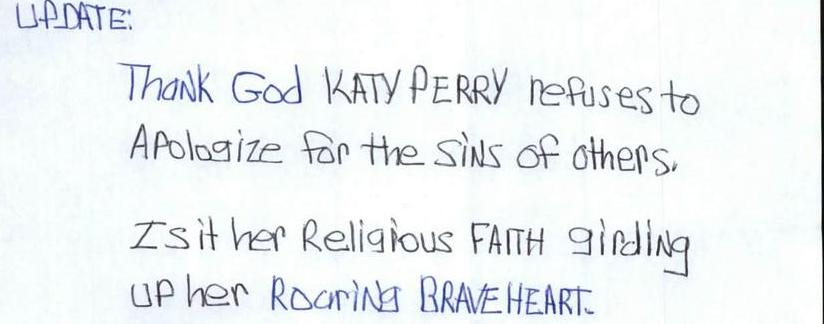 UPDATE:
Thank God KATY PERRY refuses to
Apologize for the SINS of others.
Is it her Religious FAITH girding
UP her Roaring BRAVE HEART.